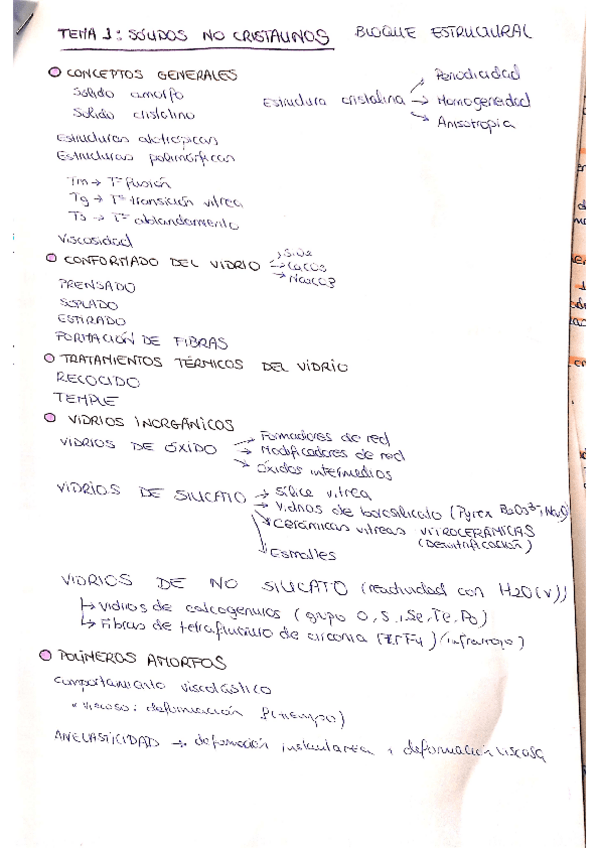 TEMA 1: SÓLIDOS NO CRISTALINOS BLOQUE ESTRUCTURAL
CONCEPTOS GENERALES
Sólido amorfo
Sólido cristalino
Estructura cristalina → Periodicidad
→ Homogeneidad
→ Anisotropia
Estructuras alotrópicas
Estructuras polimórficas
Tm → Tª fusión
Tg → Tª transición vítrea
Ts → Tª ablandamiento
Viscosidad
CONFORMADO DEL VIDRIO → Sílice
→ CaCO3
→ Na2CO3
PRENSADO
SOPLADO
ESTIRADO
FORMACIÓN DE FIBRAS
TRATAMIENTOS TÉRMICOS DEL VIDRIO
RECOCIDO
TEMPLE
VIDRIOS INORGÁNICOS
VIDRIOS DE ÓXIDO → Formadores de red
→ Modificadores de red
→ Óxidos intermedios
VIDRIOS DE SILICATO → Sílice vítrea
→ Vidrios de borosilicato (Pyrex
→ Cerámicas vítreas VITROCERÁMICAS
(Desvitrificación)
→ Esmaltes
VIDRIOS DE NO SILICATO (reactividad con H2O(v))
→ Vidrios de calcogenuros (grupo O, S, Se, Te, Po)
→ Fibras de tetrafluoruro de circonio (ZrF4) (infrarrojo)
POLÍMEROS AMORFOS
Comportamiento viscolástico
* viscoso: deformación f(tiempo)
ANELASTICIDAD → deformación instantánea, deformación viscosa